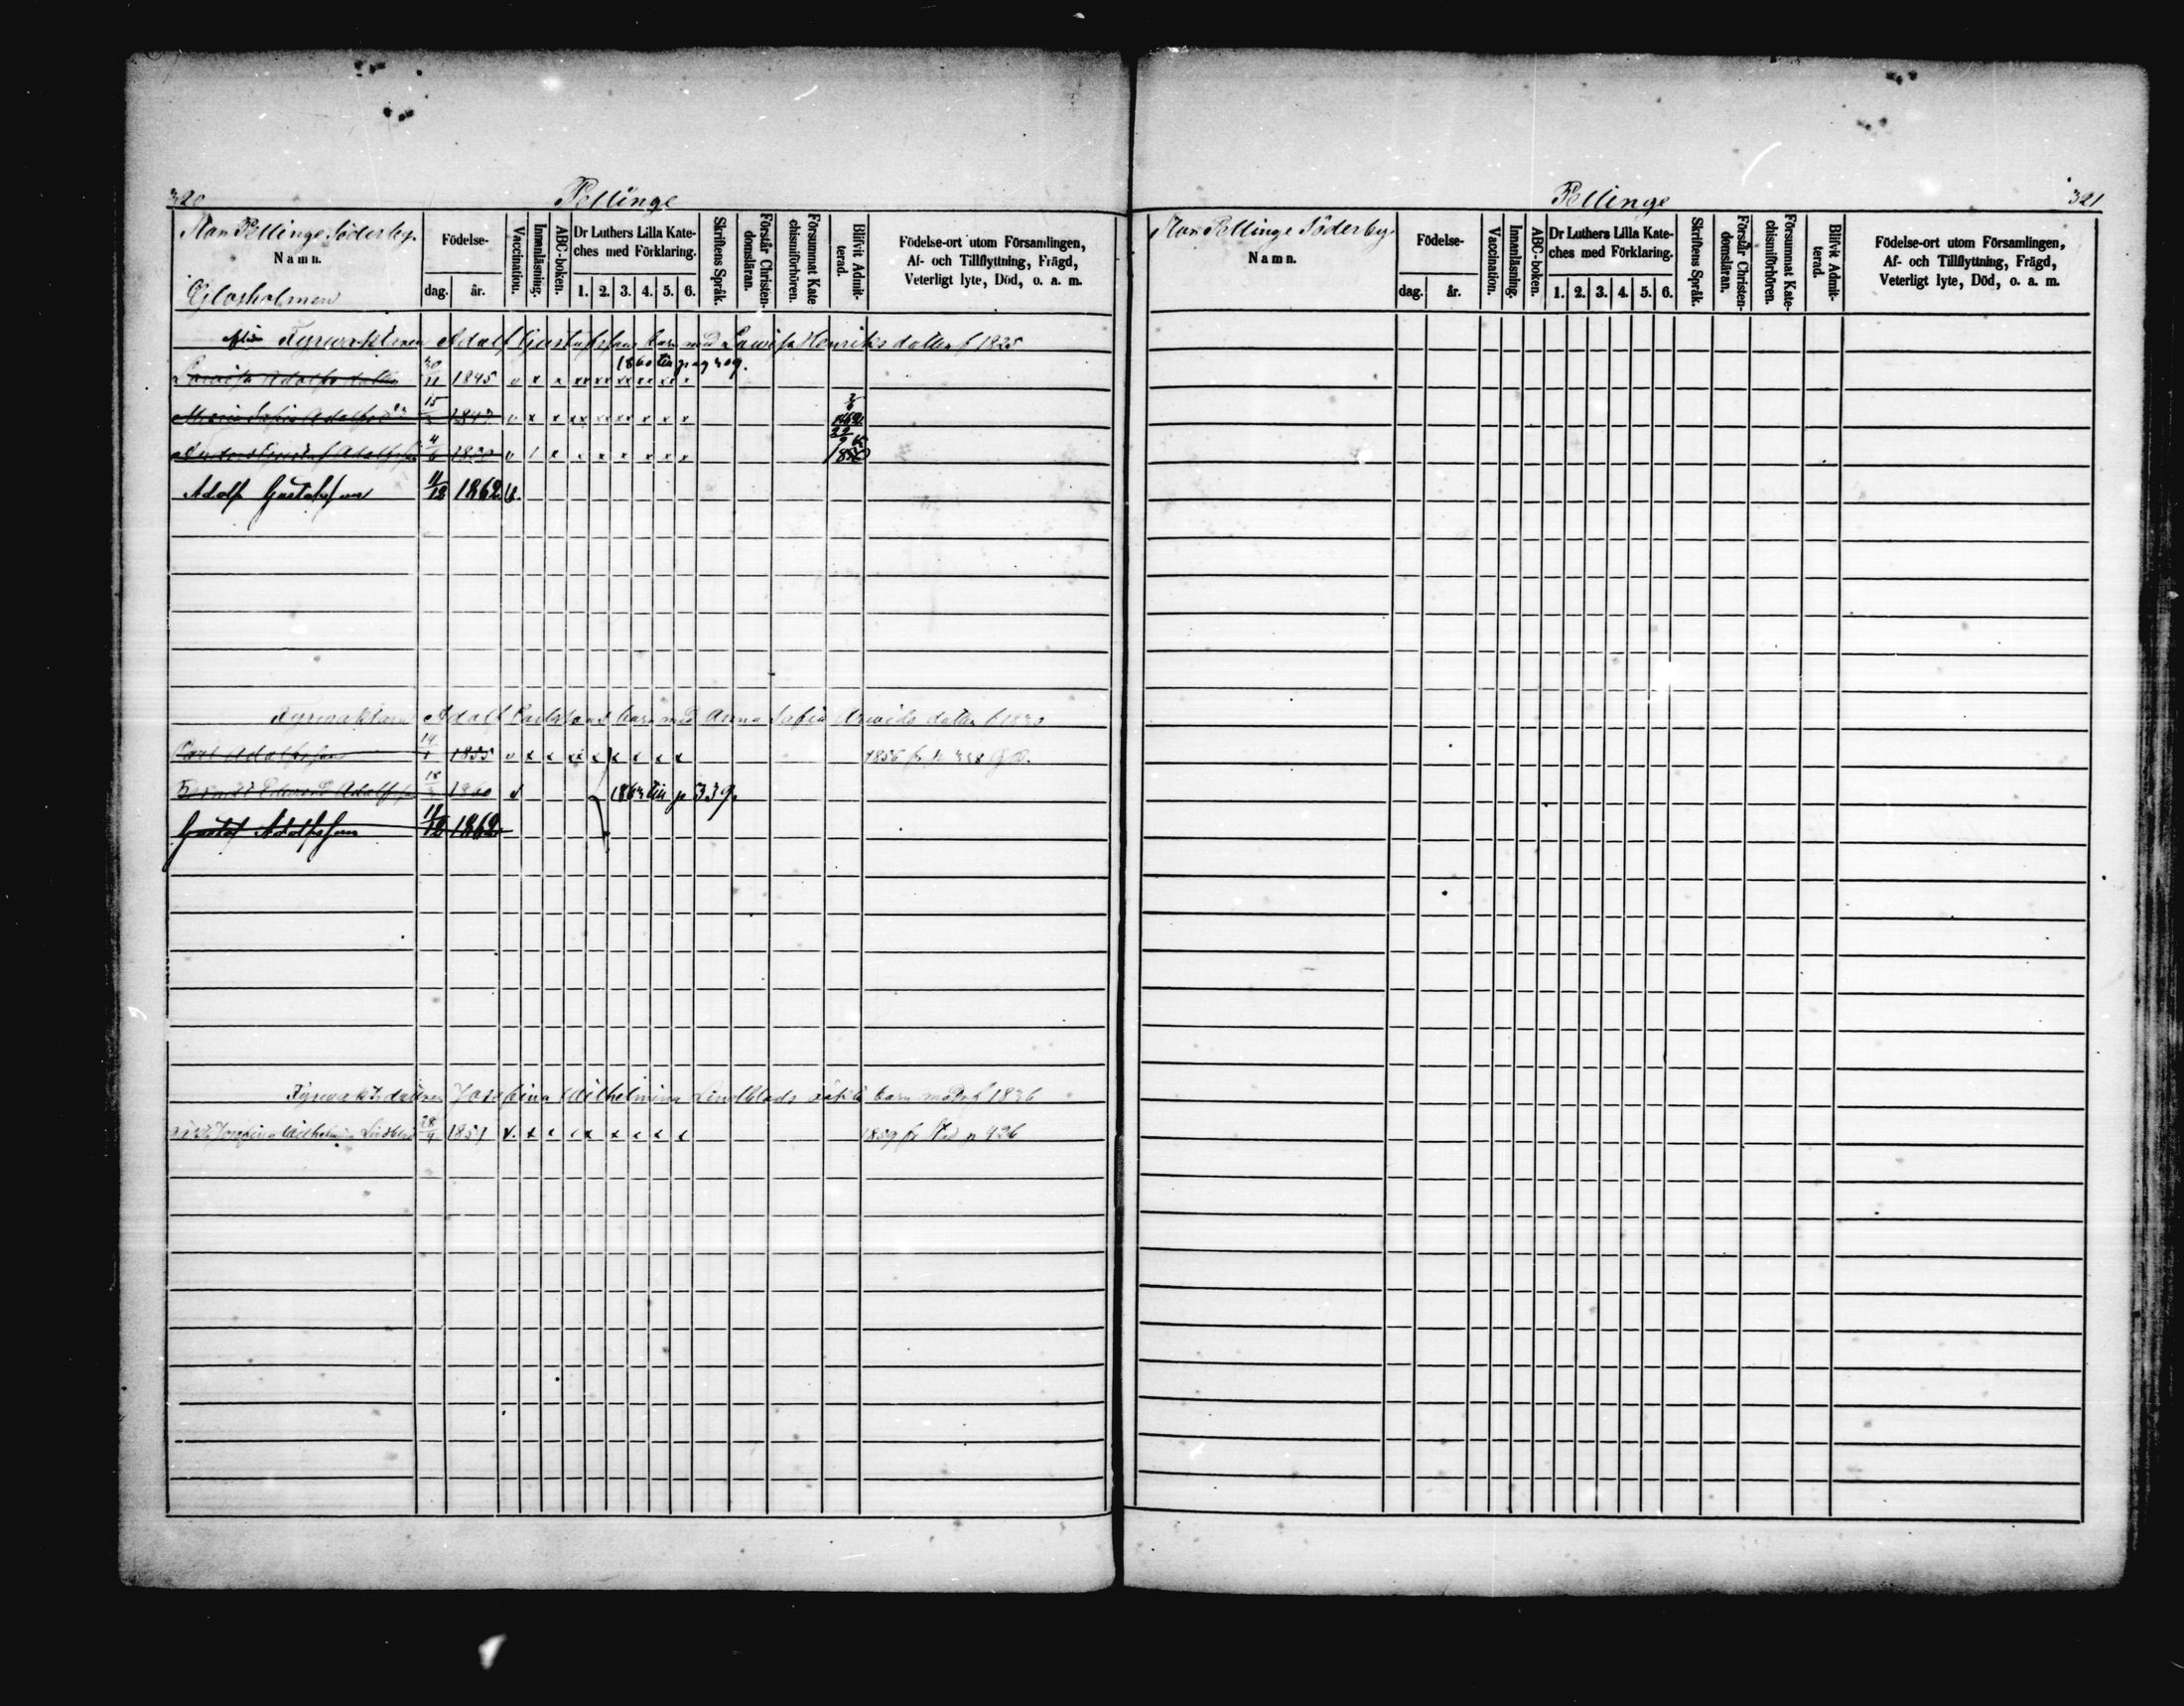 320
Pellinge
Stor Pellinge Söderby.
Namn.
Glosholmen
Födelse-
dag. år.
Vaccination.
Innanläsning.
ABC-boken.
Dr Luthers Lilla Kate-
ches med Förklaring.
1. 2. 3. 4. 5. 6.
Skriftens Språk.
Förstår Christen-
domsläran.
Försummat Kate-
chismiförhören.
Blifvit Admit-
terad.
Födelse-ort utom Församlingen,
Af- och Tillflyttning, Frägd,
Veterligt lyte, Död, o. a. m.
Fyrvaktaren Adolf Gustafssons barn med Lovisa Henriksdotter f 1825
1860 till pag 309.
Lovisa Adolfsdotter 30/11 1845 v x x xx xx xx xx xx x
Maria Sofia Adolfsd:r 15 1847 v x x xx xx xx x x x
Gustaf Adolfsson 4 v x x x x x x x
Adolf Gustafsson 11/12 1862 v.
Fyrvaktaren Adolf Carlssons barn med Anna Sofia Arvidsdotter f 1830
Carl Adolfsson 14/1 1855 v x x xx x x x x x 1856 fr p 338
Edvard Adolfsson 18 1860 v 1863 till p 339.
Gustaf Adolfsson 11/12 1862
Josefina Wilhelmina Lindblads oäkta barn f 1836
Josefina Wilhelmina Lindblad 28/4 1857 v. x x x x x x x x 1859 fr p 426
Pellinge
321
Stor Pellinge Söderby
Namn.
Födelse-
dag. år.
Vaccination.
Innanläsning.
ABC-boken.
Dr Luthers Lilla Kate-
ches med Förklaring.
1. 2. 3. 4. 5. 6.
Skriftens Språk.
Förstår Christen-
domsläran.
Försummat Kate-
chismiförhören.
Blifvit Admit-
terad.
Födelse-ort utom Församlingen,
Af- och Tillflyttning, Frägd,
Veterligt lyte, Död, o. a. m.